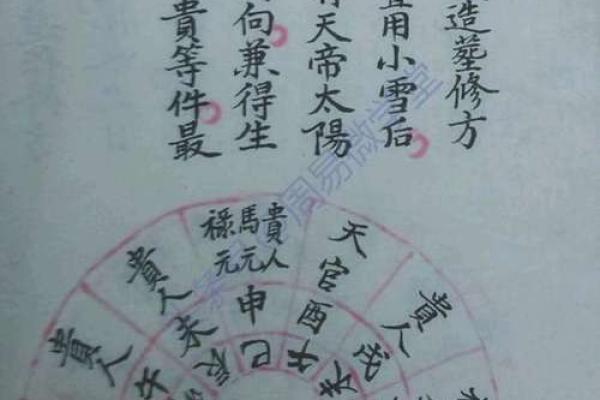 造墓修方
宜用小雪后
有天帝太陽
向兼得生
貴等件最
貴人
貴人
祿元
馬元
貴人
天官
貴人
午
未
申
酉
戌
巳
午
未
周易微学堂